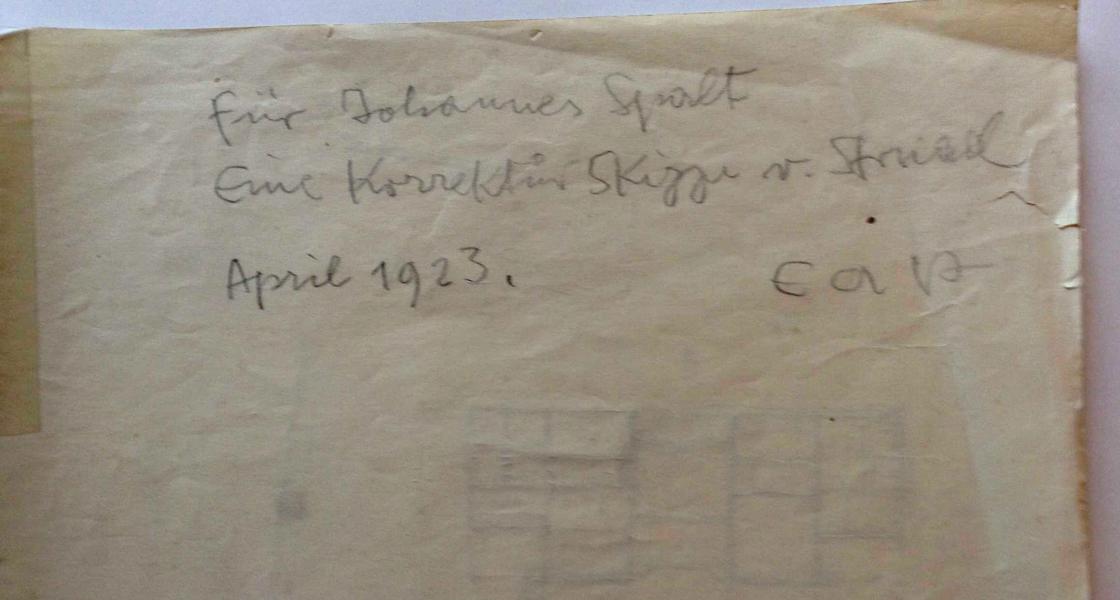 Für Johannes Spalt
Eine Korrektur Skizze v. Strnad
April 1923.